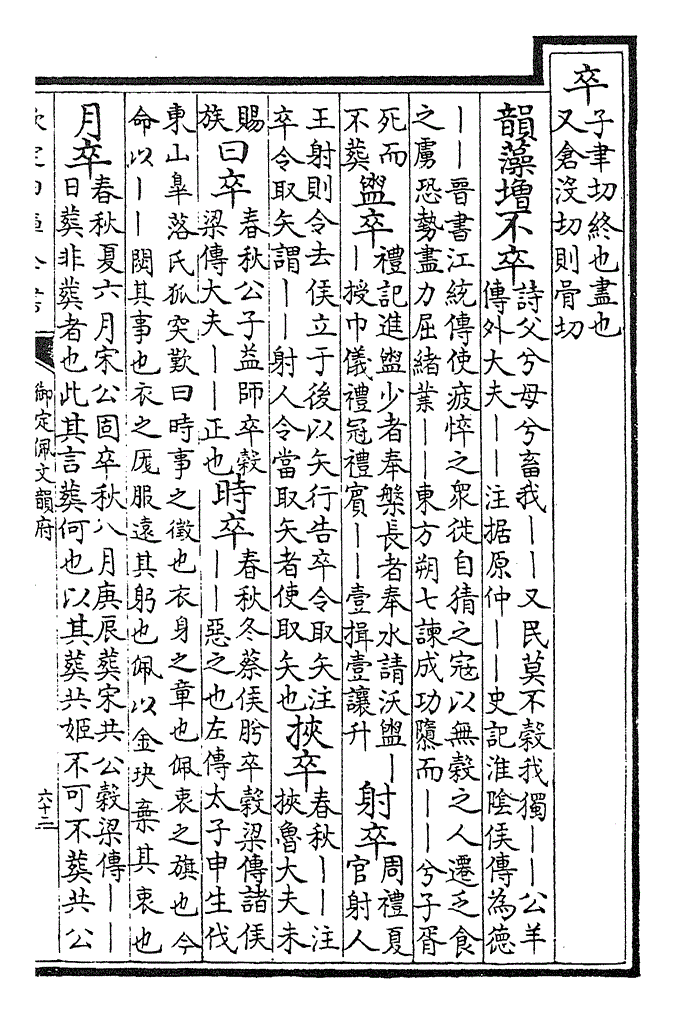 卒
子聿切終也盡也
又倉没切則骨切
韻藻增不卒
詩父兮母兮畜我——又民莫不穀我獨——公羊
傳外大夫——注据原仲——史記淮陰侯傳為德
——晉書江統傳使疲悴之衆徙自猜之冦以無穀之人遷乏食
之虜恐勢盡力屈緒業——東方朔七諫成功隳而——兮子胥
死而
不葬
盥卒
禮記進盥少者奉槃長者奉水請沃盥—
—授巾儀禮冠禮賓——壹揖壹讓升
射卒
周禮夏
官射人
王射則令去侯立于後以矢行告卒令取矢注
卒令取矢謂——射人令當取矢者使取矢也
挾卒
春秋——注
挾魯大夫未
賜
族
日卒
春秋公子益師卒穀
梁傳大夫——正也
時卒
春秋冬蔡侯肹卒穀梁傳諸侯
——惡之也左傳太子申生伐
東山臯落氏狐突歎曰時事之徵也衣身之章也佩衷之旗也今
命以——閟其事也衣之厖服遠其躬也佩以金玦棄其衷也
月卒
春秋夏六月宋公固卒秋八月庚辰葬宋共公穀梁傳——
日葬非葬者也此其言葬何也以其葬共姬不可不葬共公
欽定四庫全書
御定佩文韻府
六十二